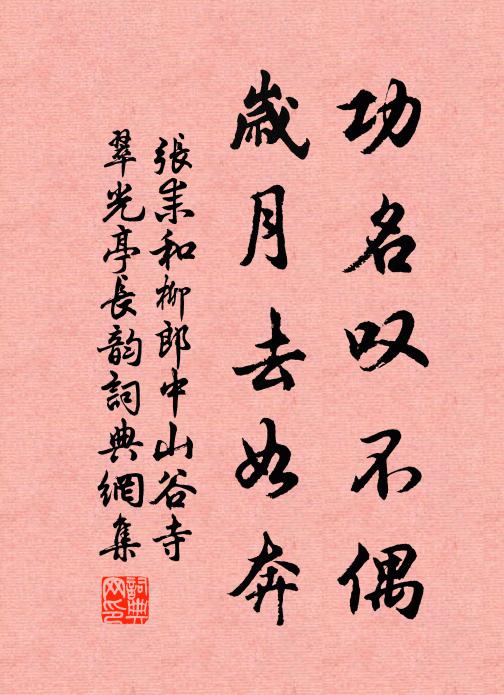 功名叹不偶
歲月去如奔
張耒和柳郎中山谷寺
翠光亭長韵詞典網集
詞典網印